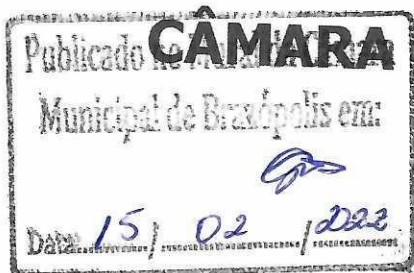 CÂMARA
Publicado
Municipal de Brazópolis em:
Data: 15 / 02 / 2022